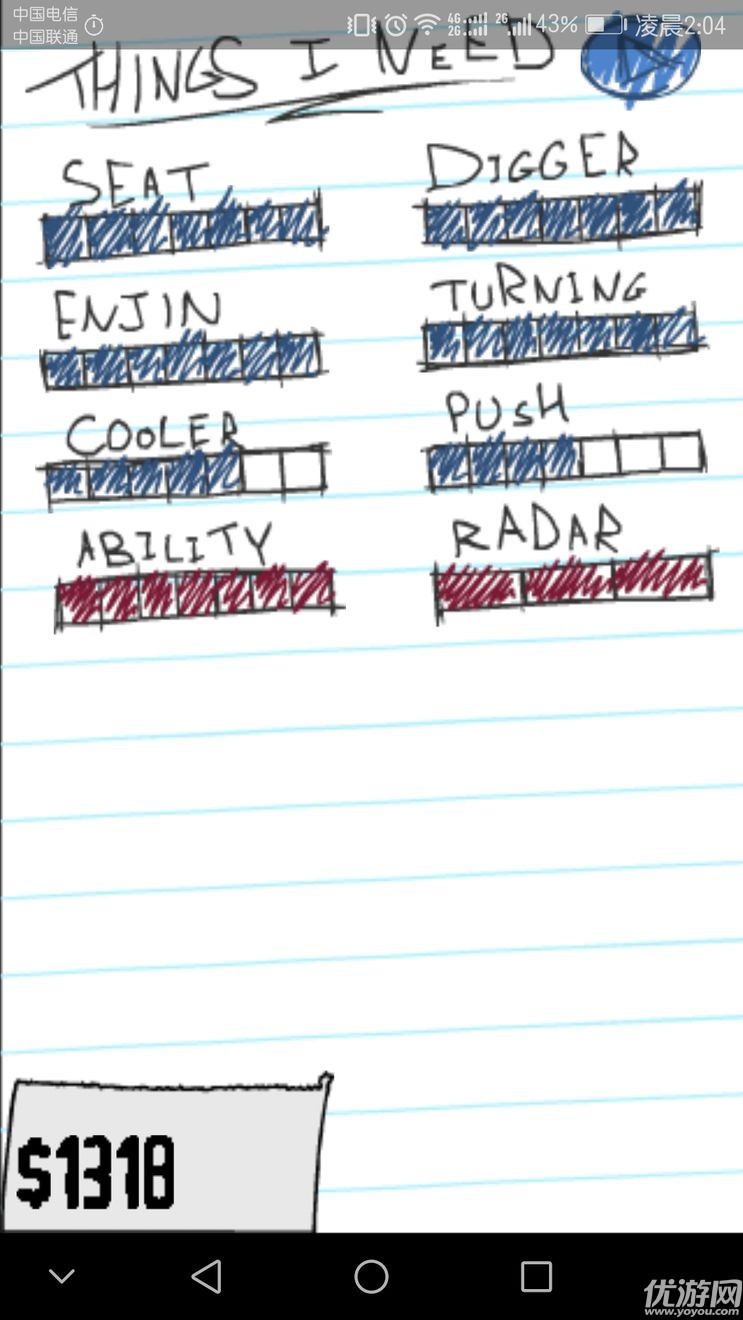 中国电信
中国联通
4G 2G 2G 43% 凌晨2:04
THINGS I NEED
SEAT DIGGER
ENJIN TURNING
COOLER PUSH
ABILITY RADAR
$1318
优游网
www.yoyou.com